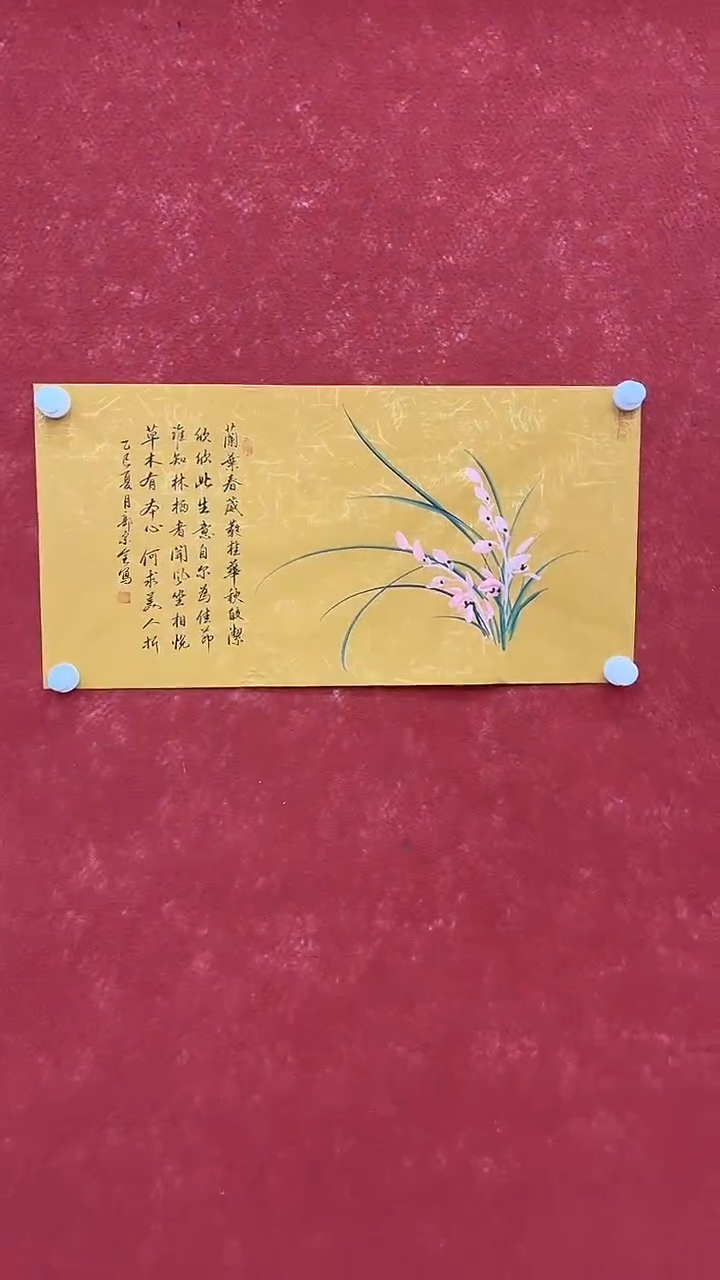 蘭葉春葳蕤桂華秋皎潔
欣欣此生意自尔為佳節
誰知林栖者聞風坐相悅
草木有本心何求美人折
乙巳夏月郭宗全寫